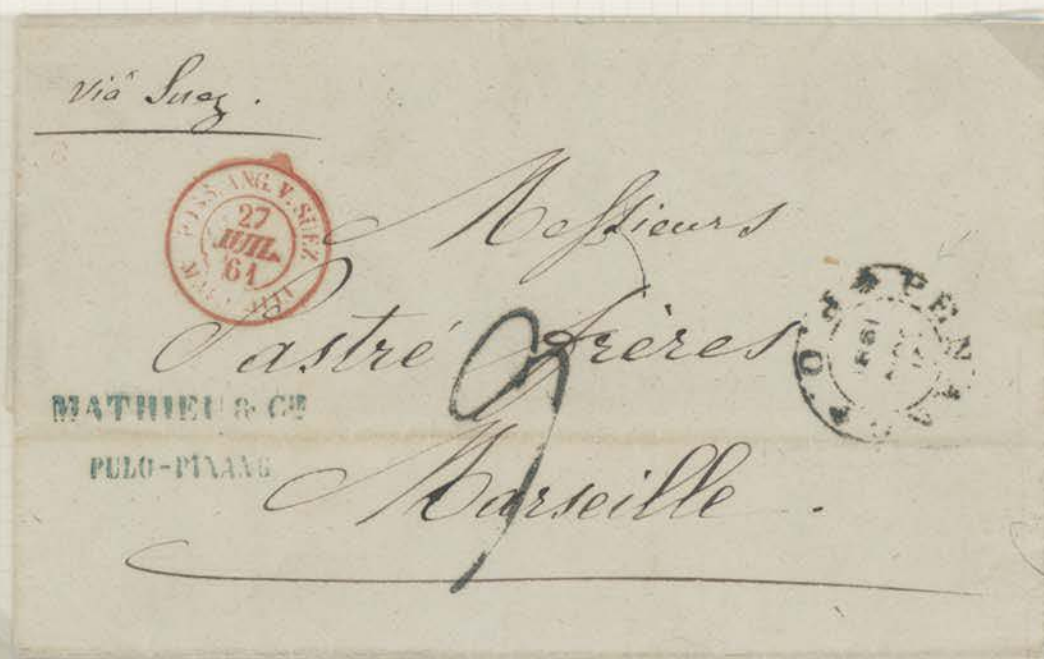 viâ Suez.
POSS. ANG. V. SUEZ
27
JUIL.
61
MARSEILLE
Messieurs
Pastré frères
MATHIEU & Cie
PULO-PINANG
Marseille.
9
PENANG
P.O.